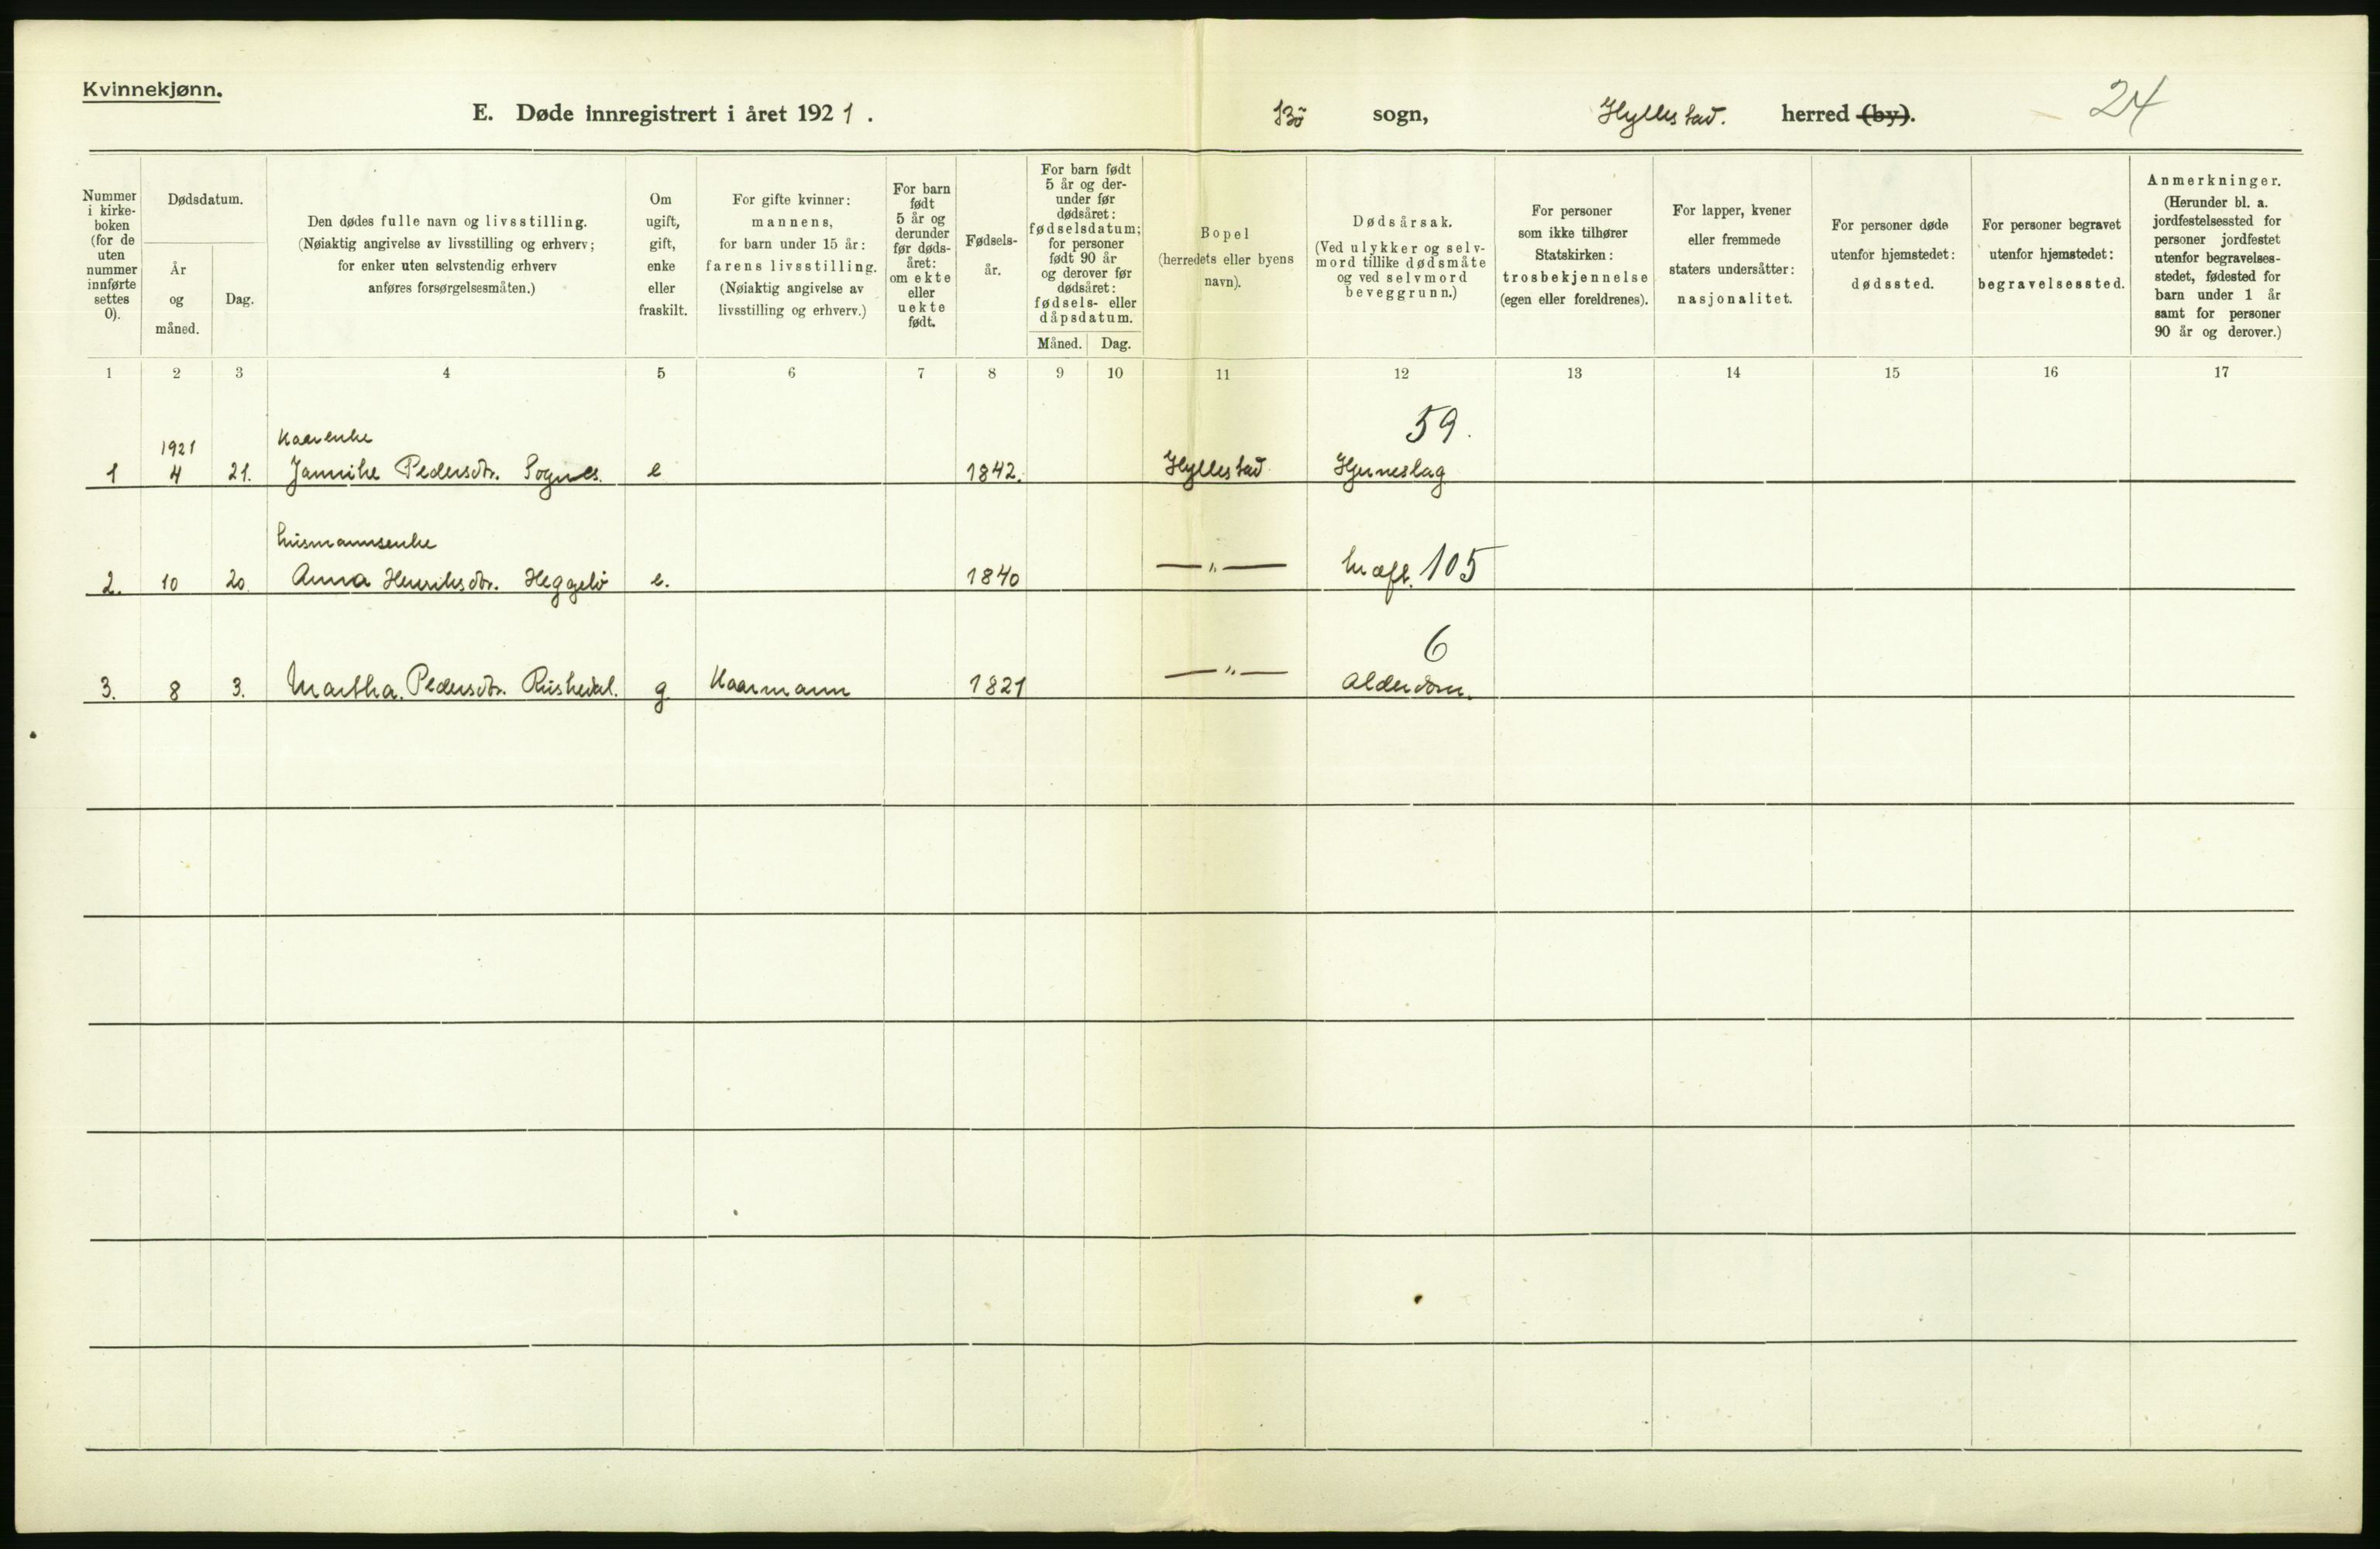 Kvinnekjønn.
E. Døde innregistrert i året 1921.
Bø sogn, Hyllestad. herred (by). 24
Nummer i kirkeboken (for de uten nummer innførte settes 0).
Dødsdatum.
År og måned.
Dag.
Den dødes fulle navn og livsstilling.
(Nøiaktig angivelse av livsstilling og erhverv;
for enker uten selvstendig erhverv
anføres forsørgelsesmåten.)
Om
ugift,
gift,
enke
eller
fraskilt.
For gifte kvinner:
mannens,
for barn under 15 år:
farens livsstilling.
(Nøiaktig angivelse av
livsstilling og erhverv.)
For barn
født
5 år og
derunder
før døds-
året:
om ekte
eller
uekte
født.
Fødsels-
år.
For barn født
5 år og der-
under før
dødsåret:
fødselsdatum;
for personer
født 90 år
og derover før
dødsåret:
fødsels- eller
dåpsdatum.
Måned. Dag.
Bopel
(herredets eller byens
navn).
Dødsårsak.
(Ved ulykker og selv-
mord tillike dødsmåte
og ved selvmord
beveggrunn.)
For personer
som ikke tilhører
Statskirken:
trosbekjennelse
(egen eller foreldrenes).
For lapper, kvener
eller fremmede
staters undersåtter:
nasjonalitet.
For personer døde
utenfor hjemstedet:
dødssted.
For personer begravet
utenfor hjemstedet:
begravelsessted.
Anmerkninger.
(Herunder bl. a.
jordfestelsessted for
personer jordfestet
utenfor begravelses-
stedet, fødested for
barn under 1 år
samt for personer
90 år og derover.)
1 2 3 4 5 6 7 8 9 10 11 12 13 14 15 16 17
1921 Kaarenke 59.
1 4 21. Jannike Pedersdtr. Sognes. e 1842. Hyllestad Hjerneslag
husmannsenke
2. 10 20 Anna Henriksdtr. Heggelø e. 1840 —"— 105
6
3. 8 3. Martha Pedersdtr. Riskedal. g. Kaarmann 1821 —"— Alderdom.